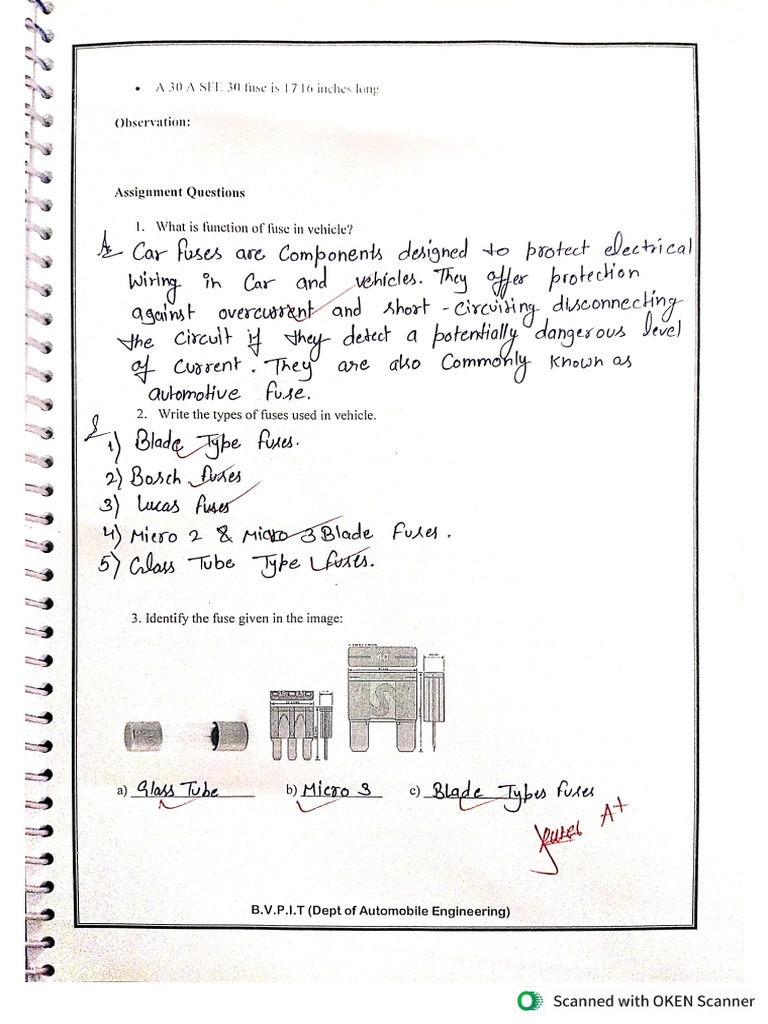 • A 30 A SFE 30 fuse is 17 16 inches long
Observation:
Assignment Questions
1. What is function of fuse in vehicle?
Car fuses are Components designed to protect electrical
Wiring in Car and vehicles. They offer protection
against overcurrent and short-circuiting disconnecting
the circuit if they detect a potentially dangerous level
of current. They are also Commonly known as
automotive fuse.
2. Write the types of fuses used in vehicle.
1) Blade Type fuses.
2) Bosch fuses
3) Lucas fuses
4) Micro 2 & Micro 3 Blade Fuses.
5) Glass Tube Type fuses.
3. Identify the fuse given in the image:
a) Glass Tube b) Micro 3 c) Blade Types fuses
A+
B.V.P.I.T (Dept of Automobile Engineering)
Scanned with OKEN Scanner